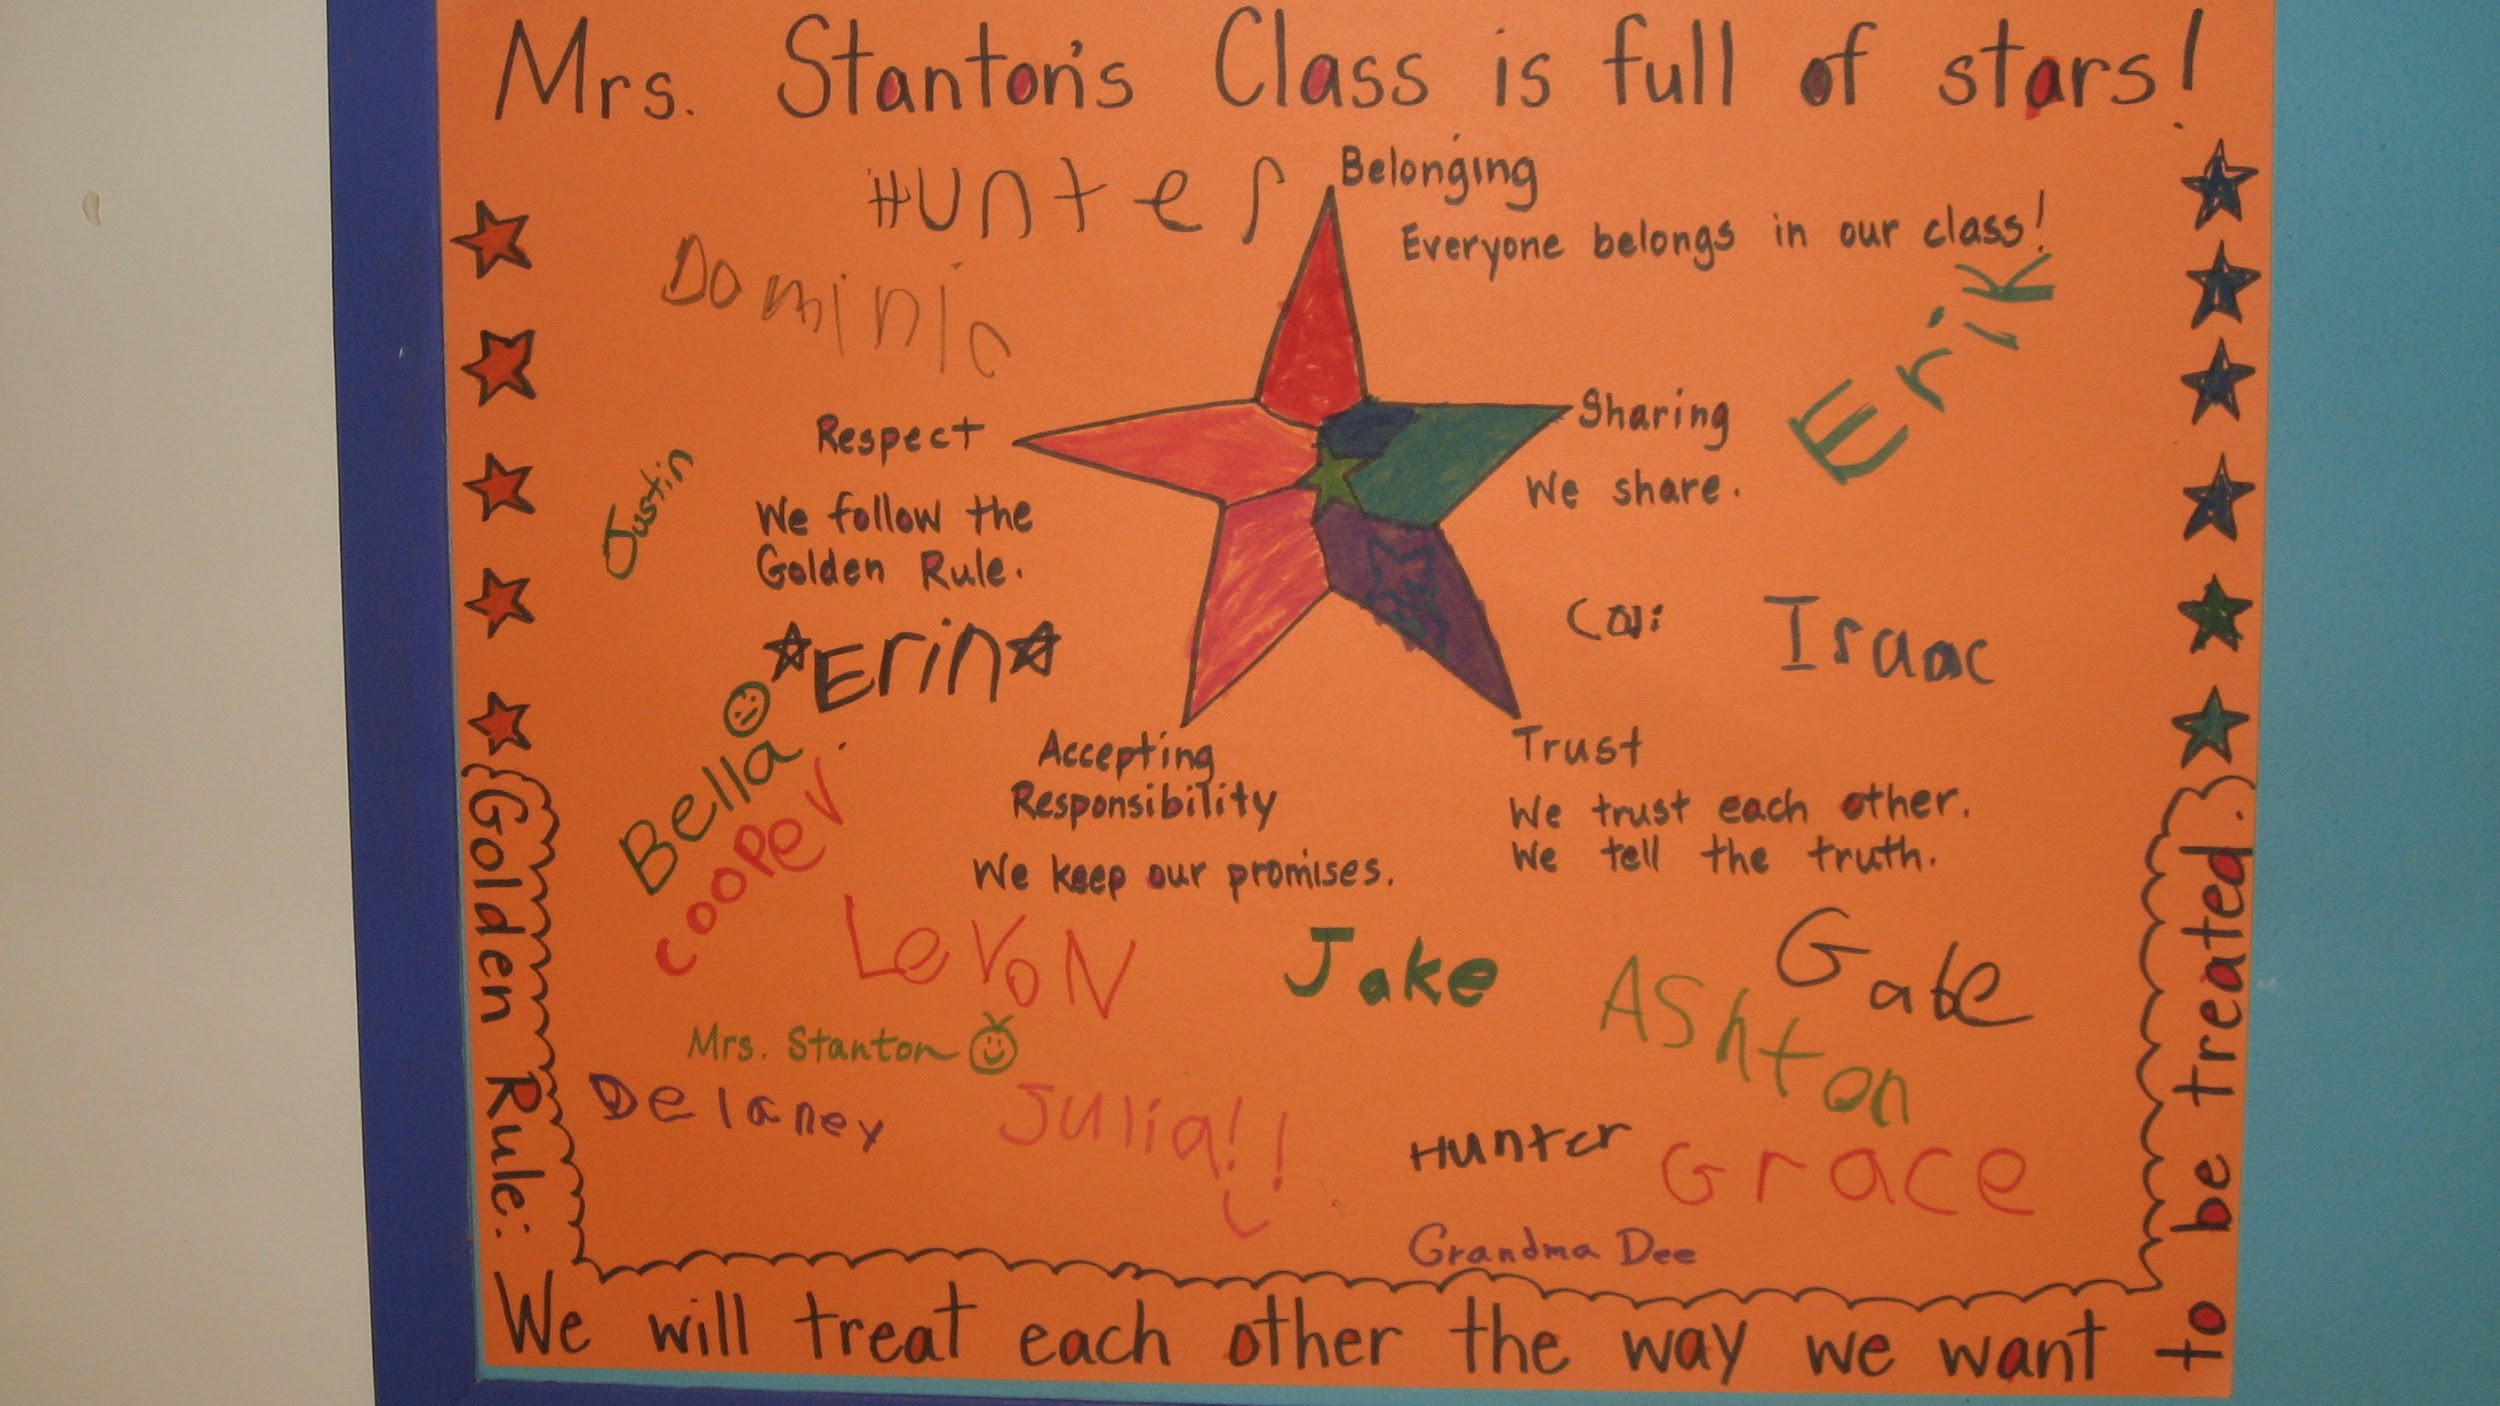 Mrs. Stanton's Class is full of stars!
Hunter
Belonging
Everyone belongs in our class!
Dominic
Erik
Respect
Sharing
Justin
We follow the
Golden Rule.
We share.
Erin
Isaac
Bella
Cooper
Accepting
Responsibility
We keep our promises.
Trust
We trust each other.
We tell the truth.
LeVoN
Jake
Gabe
AShton
Mrs. Stanton
Delaney
Julia!!
Hunter
Grace
Grandma Dee
(Golden Rule:
We will treat each other the way we want
to be treated.)